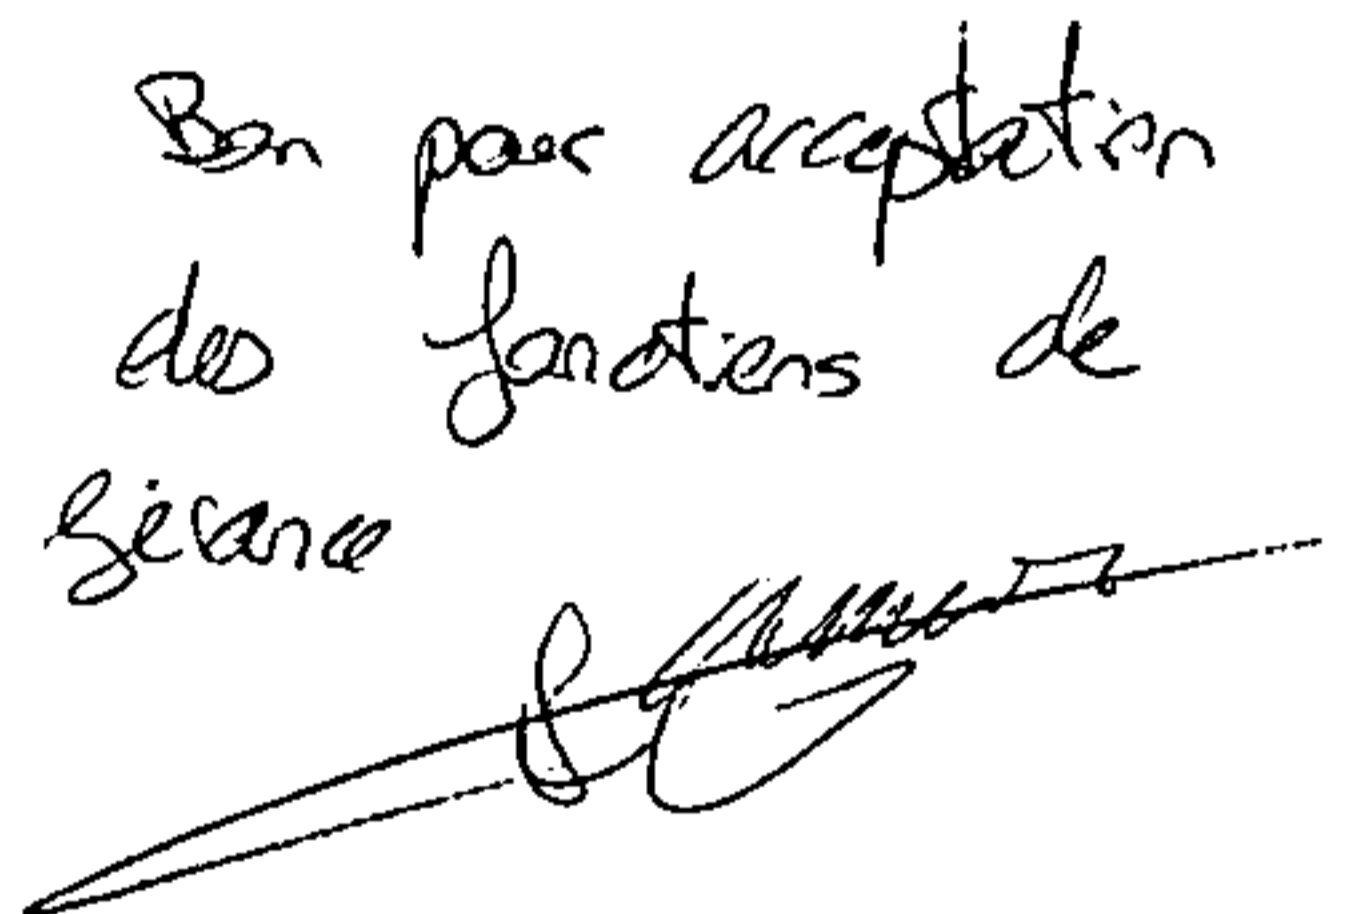 Bon pour acceptation
des fonctions de
gérance